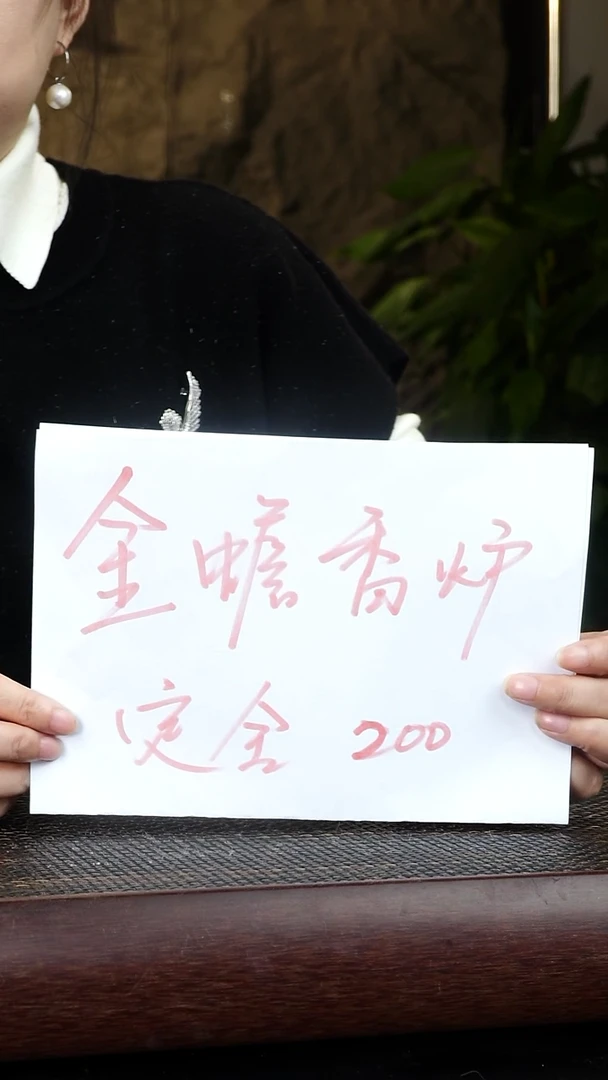 金蟾香炉
定金 200